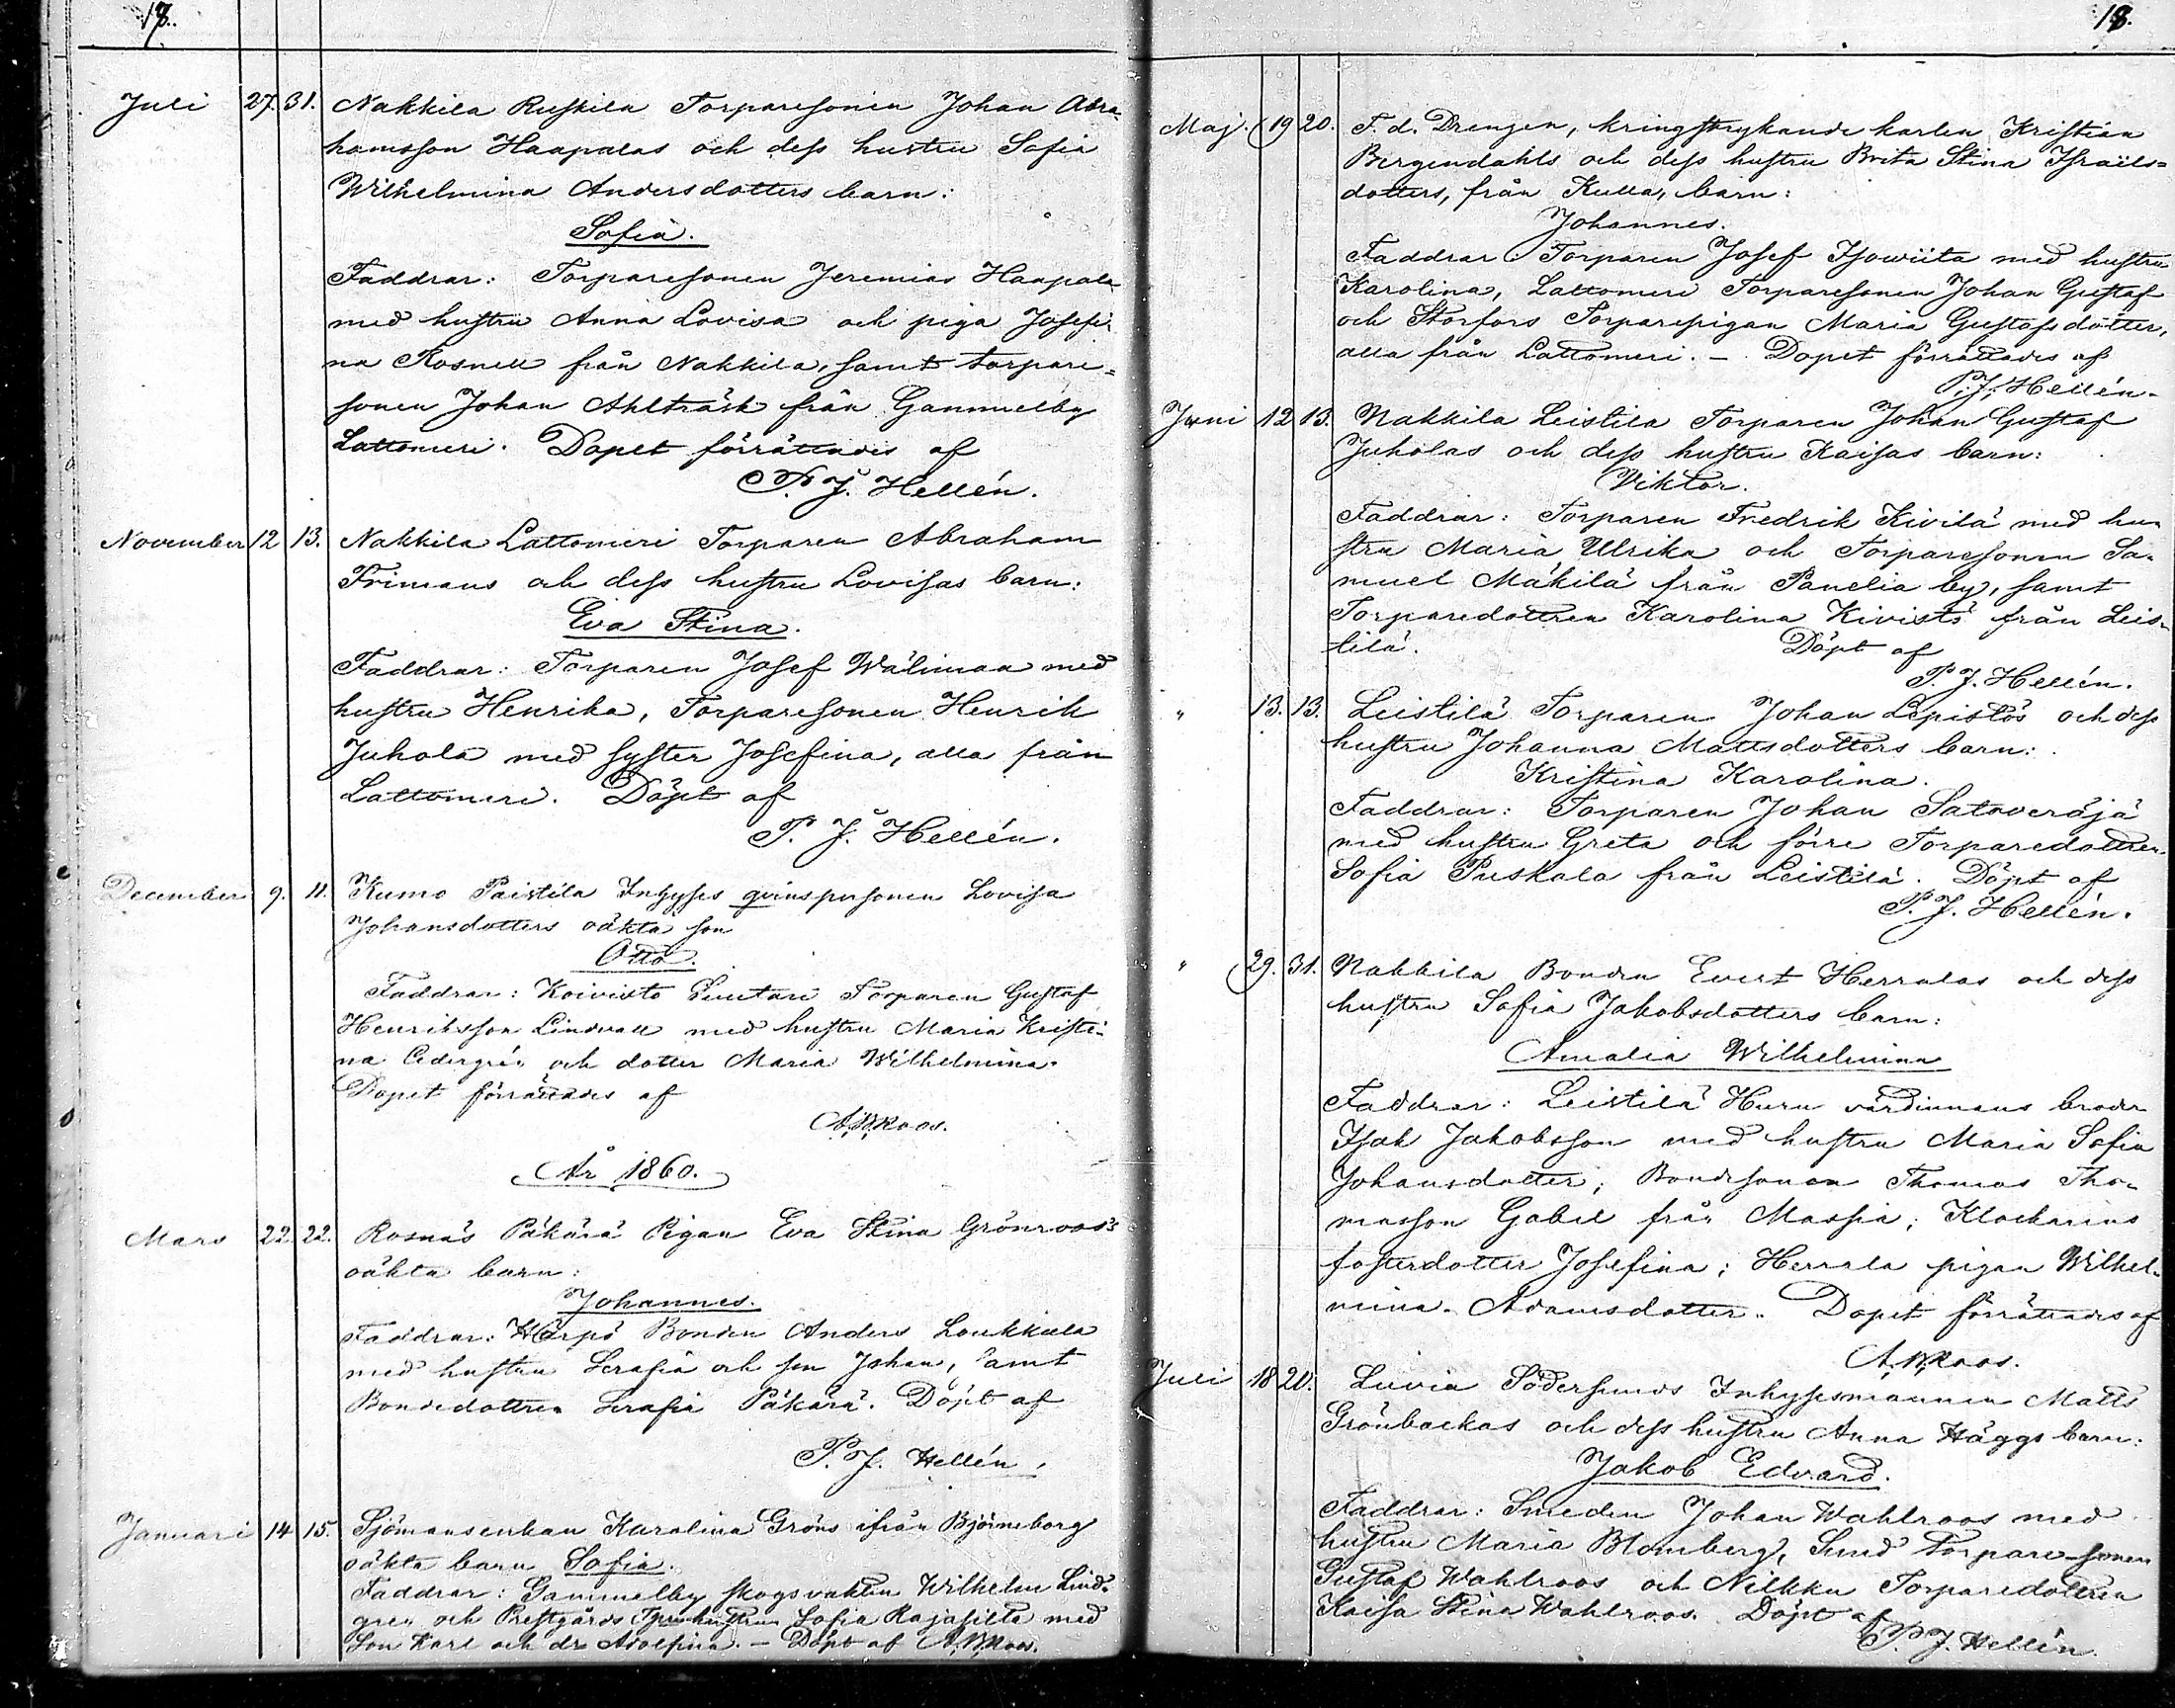 17.
Juli 27. 31. Nakkila Ruskila Torparesonen Johan Abra-
hamsson Haapalas och dess hustru Sofia
Wilhelmina Andersdotters barn:
Sofia.
Faddrar: Torparesonen Jeremias Haapala
med hustru Anna Lovisa och piga Josefi-
na Rosnell från Nakkila, samt torpare-
sonen Johan Ahlträsk från Gammelby
Lattomeri. Dopet förrättades af
P. J. Hellén.
November 12 13. Nakkila Lattomeri Torparen Abraham
Frimans och dess hustru Lovisas barn:
Eva Stina.
Faddrar: Torparen Josef Wälimaa med
hustru Henrika, Torparesonen Henrik
Juhola med syster Josefina, alla från
Lattomeri. Döpt af
P. J. Hellén.
December 9. 11. Kumo Paistila Inhyses qvinspersonen Lovisa
Johansdotters oäkta son
Otto.
Faddrar: Koivisto Suutari Torparen Gustaf
Henriksson Lindvall med hustru Maria Kristi-
na Cedergrén och dotter Maria Wilhelmina.
Dopet förrättades af
A. W. Roos.
År 1860.
Mars 22. 22. Rosnäs Päkärä Pigan Eva Stina Grönroos's
oäkta barn:
Johannes.
Faddrar: Härpö Bonden Anders Loukkula
med hustru Serafia och son Johan, samt
Bondedottren Serafia Päkärä. Döpt af
P. J. Hellén.
Januari 14 15. Sjömansenkan Karolina Gröns ifrån Björneborg
oäkta barn Sofia.
Faddrar: Gammelby skogsvakten Wilhelm Lind-
gren och Prestgårds hustrun Sofia Rajasilta med
Son Karl och dr Adolfina. – Döpt af A. W. Roos.
18.
Maj. 19 20. F. d. Drengen, kringstrykande karlen Kristian
Bergendahls och dess hustru Brita Stina Israels-
dotters, från Kulla, barn:
Johannes.
Faddrar: Torparen Josef Isowiita med hustru
Karolina, Lattomeri Torparesonen Johan Gustaf
och Storfors Torparepigan Maria Gustafsdotter,
alla från Lattomeri. – Dopet förrättades af
P. J. Hellén.
Juni 12 13. Nakkila Leistila Torparen Johan Gustaf
Juholas och dess hustru Kaisas barn:
Viktor.
Faddrar: Torparen Fredrik Kivilä med hu-
stru Maria Ulrika och Torparesonen Sa-
muel Mäkilä från Panelia by, samt
Torparedottren Karolina Kivistö från Leis-
tilä. Döpt af
P. J. Hellén.
" 13. 13. Leistilä Torparen Johan Lepistös och dess
hustru Johanna Mattsdotters barn:
Kristina Karolina.
Faddrar: Torparen Johan Satoveräjä
med hustru Greta och förre Torparedottren
Sofia Puskala från Leistilä. Döpt af
P. J. Hellén.
" 29. 31. Nakkila Bonden Evert Herralas och dess
hustru Sofia Jakobsdotters barn:
Amalia Wilhelmina
Faddrar: Leistilä Huru värdinnans broder
Isak Jakobsson med hustru Maria Sofia
Johansdotter; Bondesonen Thomas Tho-
masson Gabel från Massia; Klockarens
fosterdotter Josefina; Herrala pigan Wilhel-
mina Adamsdotter. Dopet förrättades af
A. W. Roos.
Juli 18 20. Luvia Södersunds Inhysesmannen Matts
Grönbackas och dess hustru Anna Häggs barn:
Jakob Edvard.
Faddrar: Smeden Johan Wahlroos med
hustru Maria Blomberg, Sund Torpare-sonen
Gustaf Wahlroos och Nilkku Torparedottren
Kaisa Stina Wahlroos. Döpt af
P. J. Hellén.